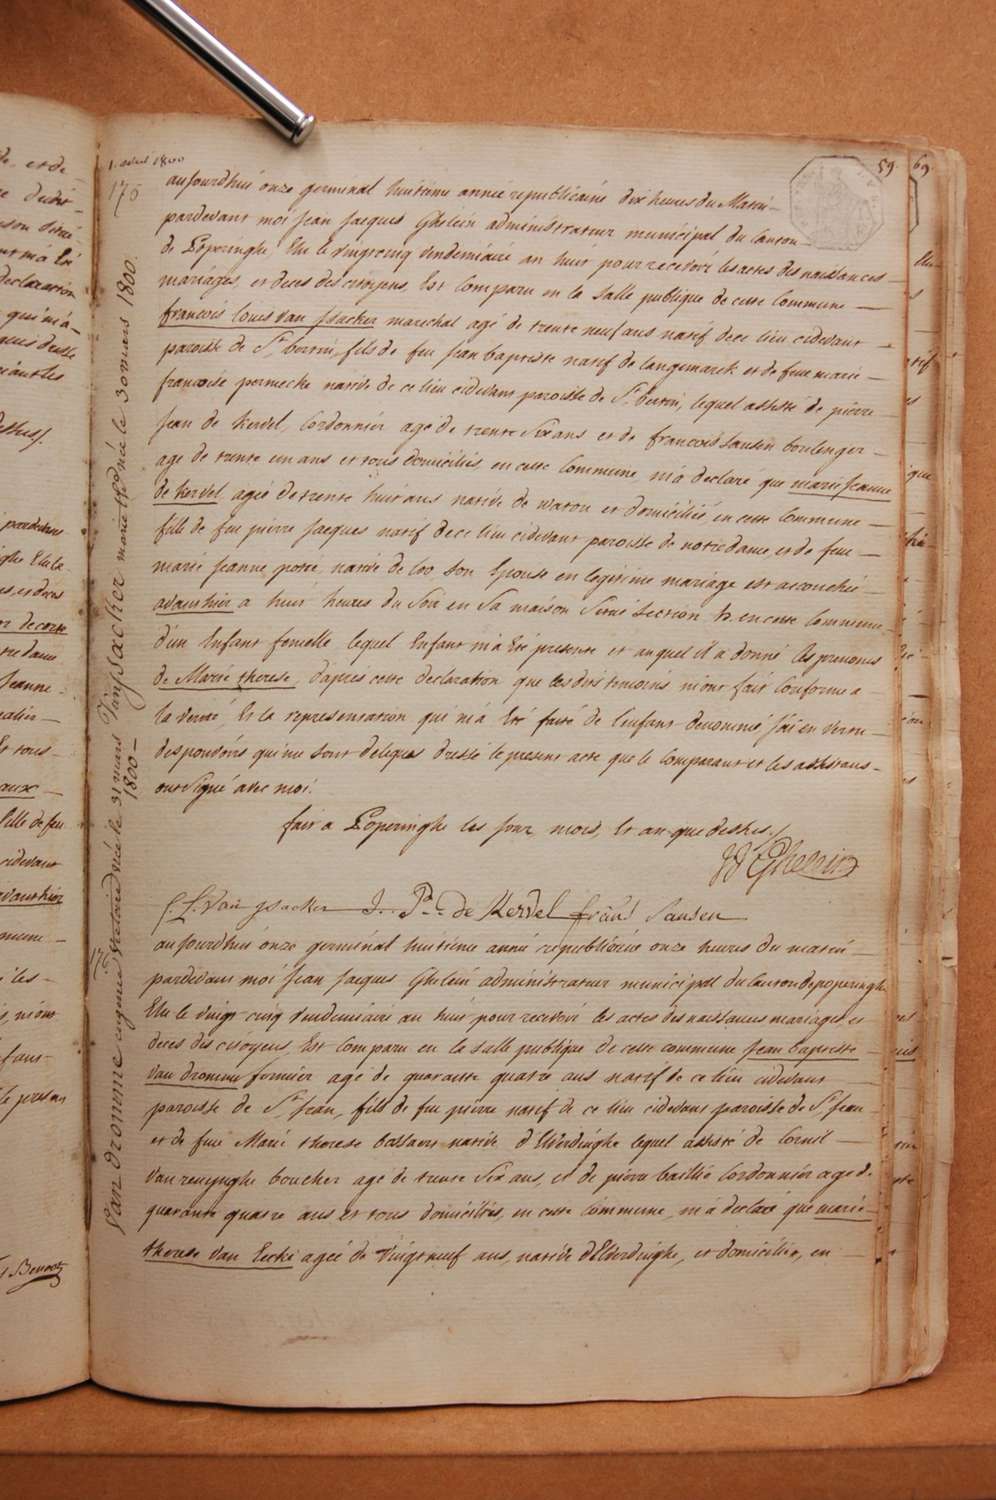 1. avril 1800
59
69
176
aujourdhui onze germinal huitieme année republicaine dix heures du Matin
pardevant moi Jean Jacques Ghelein administrateur municipal du Canton
de Poperinghe, Elu le vingtcinq vendemiaire an huit pour recevoir les actes des naissances
mariages, et deces des citoyens, Est Comparu en la Salle publique de cette Commune
francois louis van Jsacker marechal agé de trente neuf ans natif de ce lieu cidevant
paroisse de St bertin, fils de feu Jean baptiste natif de langemarck et de feue marie
francoise permeche native de ce lieu cidevant paroisse de St bertin, lequel assisté de pierre
Jean de Kervel, Cordonnier age de trente six ans et de francois Jansen boulenger
age de trente un ans et tous domiciliés, en cette Commune, m'a declaré que marie Jeanne
de Kervel agée de trente huit ans native de watou et domiciliée, en cette Commune
fille de feu pierre Jacques natif de ce lieu cidevant paroisse de notre dame, et de feue
marie Jeanne pote, native de loo son Epouse en legitime mariage est accouchée
avanthier a huit heures du Soir en Sa maison Scituée Section b. en cette Commune
d'un Enfant femelle lequel Enfant m'a Eté presente et auquel il a donné les prenoms
de Marie therese, d'apres cette declaration que lesdits temoins m'ont fait Conforme a
la verité Et la representation qui m'a Eté faite de l'enfant denommé J'ai en vertu
des pouvoirs qui me sont delegues dressé le present acte que le Comparant et les assistans
ont Signé avec moi.
fait a Poperinghe les Jour, mois, Et an que dessus./
JJ Ghelein
f. L. van jsacker J. P. de Kervel frans Jansen
177
aujourdhui onze germinal huitieme année republicaine onze heures du matin
pardevant moi Jean Jacques Ghelein administrateur municipal du Canton de poperinghe
Elu le vingt cinq vendemiaire an huit pour recevoir les actes des naissances mariages, et
deces des citoyens, Est Comparu en la Salle publique de cette commune Jean baptiste
van dromme fermier age de quarante quatre ans natif de ce lieu cidevant
paroisse de St Jean, fils de feu pierre natif de ce lieu cidevant paroisse de St Jean
et de feue Marie therese native d'Elverdinghe lequel assisté de Cornil
van renynghe boucher age de trente Six ans, et de pierre baillie Cordonnier age de
quarante quatre ans et tous domiciliés, en cette commune, m'a declaré que marie
therese van Eecke agée de vingt neuf ans, native d'Elverdinghe, et domiciliée, en
Vanjsacker marie thé née le 30 mars 1800.
van dromme née le 31 mars
1800